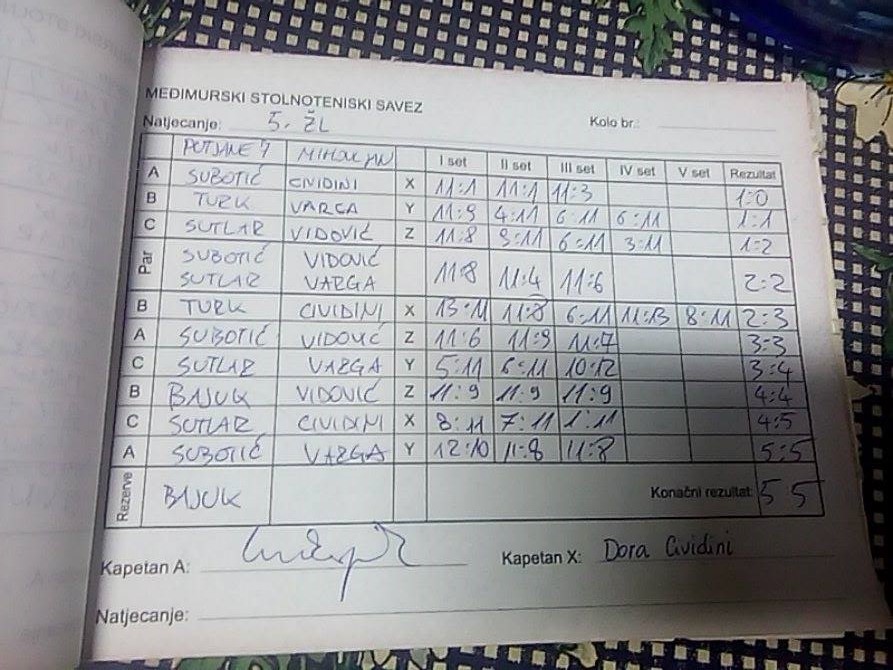 MEĐIMURSKI STOLNOTENISKI SAVEZ
Natjecanje: 5. ŽL Kolo br.:
I set II set III set IV set V set Rezultat
A SUBOTIĆ CIVIDINI X 11:1 11:1 11:3 1:0
B TURK VARGA Y 11:9 4:11 6:11 6:11 1:1
C SUTLAR VIDOVIĆ Z 11:8 9:11 6:11 3:11 1:2
Par SUBOTIĆ VIDOVIĆ
SUTLAR VARGA 11:8 11:4 11:6 2:2
B TURK CIVIDINI X 13:11 11:8 6:11 11:13 8:11 2:3
A SUBOTIĆ VIDOVIĆ Z 11:6 11:9 11:7 3:3
C SUTLAR VARGA Y 5:11 6:11 10:12 3:4
B BAJUK VIDOVIĆ Z 11:9 11:9 11:9 4:4
C SUTLAR CIVIDINI X 8:11 7:11 1:11 4:5
A SUBOTIĆ VARGA Y 12:10 11:8 11:8 5:5
Rezerve BAJUK Konačni rezultat: 5 5
Kapetan A: Kapetan X: Dora Cividini
Natjecanje: